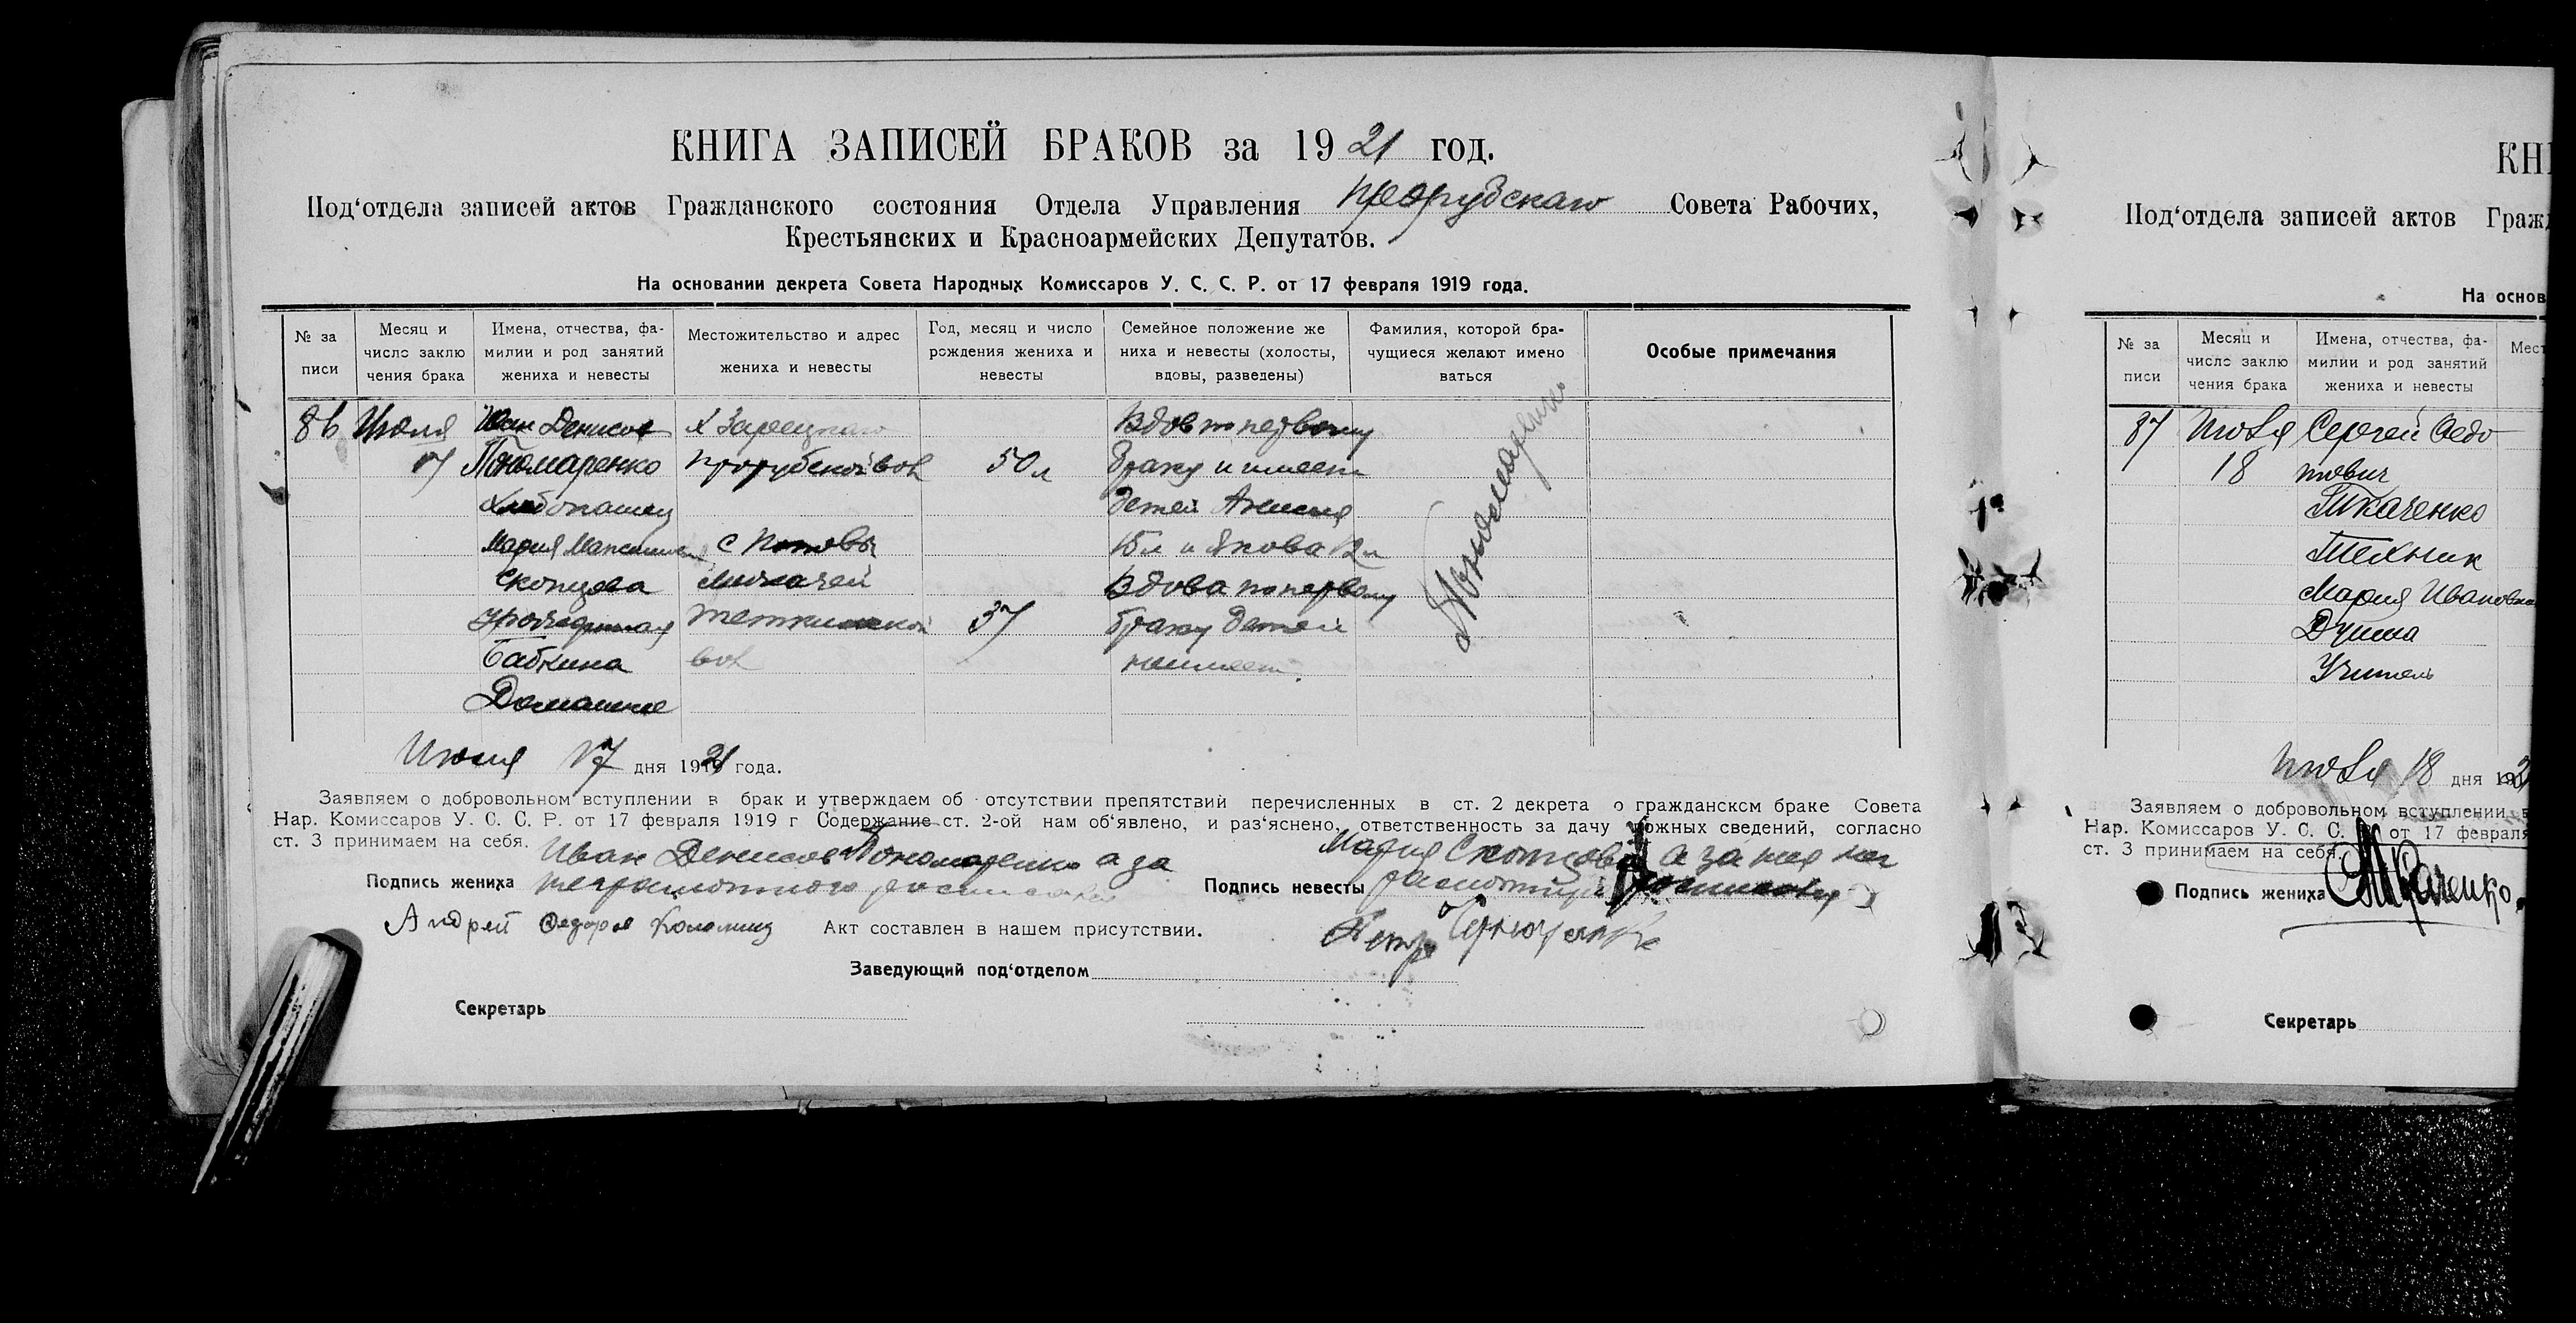 КНИГА ЗАПИСЕЙ БРАКОВ за 1921 год.
Под‘отдела записей актов Гражданского состояния Отдела Управления Совета Рабочих,
Крестьянских и Красноармейских Депутатов.
На основании декрета Совета Народных Комиссаров У. С. С. Р. от 17 февраля 1919 года.
№ за писи
Месяц и число заклю чения брака
Имена, отчества, фа- милии и род занятий жениха и невесты
Местожительство и адрес жениха и невесты
Год, месяц и число рождения жениха и невесты
Семейное положение же ниха и невесты (холосты, вдовы, разведены)
Фамилия, которой бра- чущиеся желают имено ваться
Особые примечания
86 Июля Иван Денисов х Зарецкаго Вдов по первому
17 Пономаренко 50 л браку и имеет
Хлебопашец детей
Мария с 15 л и Якова 12 л
Скопцова Вдова по первому
урожденная 37 браку детей
Бабкина вол неимеет.
Домашние
Пономаренко
Июля 17 дня 1921 года.
Заявляем о добровольном вступлении в брак и утверждаем об отсутствии препятствий перечисленных в ст. 2 декрета о гражданском браке Совета
Нар. Комиссаров У. С. С. Р. от 17 февраля 1919 г Содержание ст. 2-ой нам об‘явлено, и раз‘яснено, ответственность за дачу ложных сведений, согласно
ст. 3 принимаем на себя.
Иван Денисов Пономаренко а за
Подпись жениха неграмотного
Андрей Федоров Коломиец
Мария Скопцова а за нея не
Подпись невесты
Петр
Акт составлен в нашем присутствии.
Заведующий под‘отделом
Секретарь
КН
Под‘отдела записей актов Гражд
На основ
№ за писи
Месяц и число заклю чения брака
Имена, отчества, фа- милии и род занятий жениха и невесты
Мест
87 Июля Сергей Федо-
18 тович
Ткаченко
Техник
Мария Ивановна
Учитель
Июля 18 дня 19
Заявляем о добровольном вступлении в
Нар. Комиссаров У. С. С. Р. от 17 февраля
ст. 3 принимаем на себя.
Подпись жениха Ткаченко
Секретарь